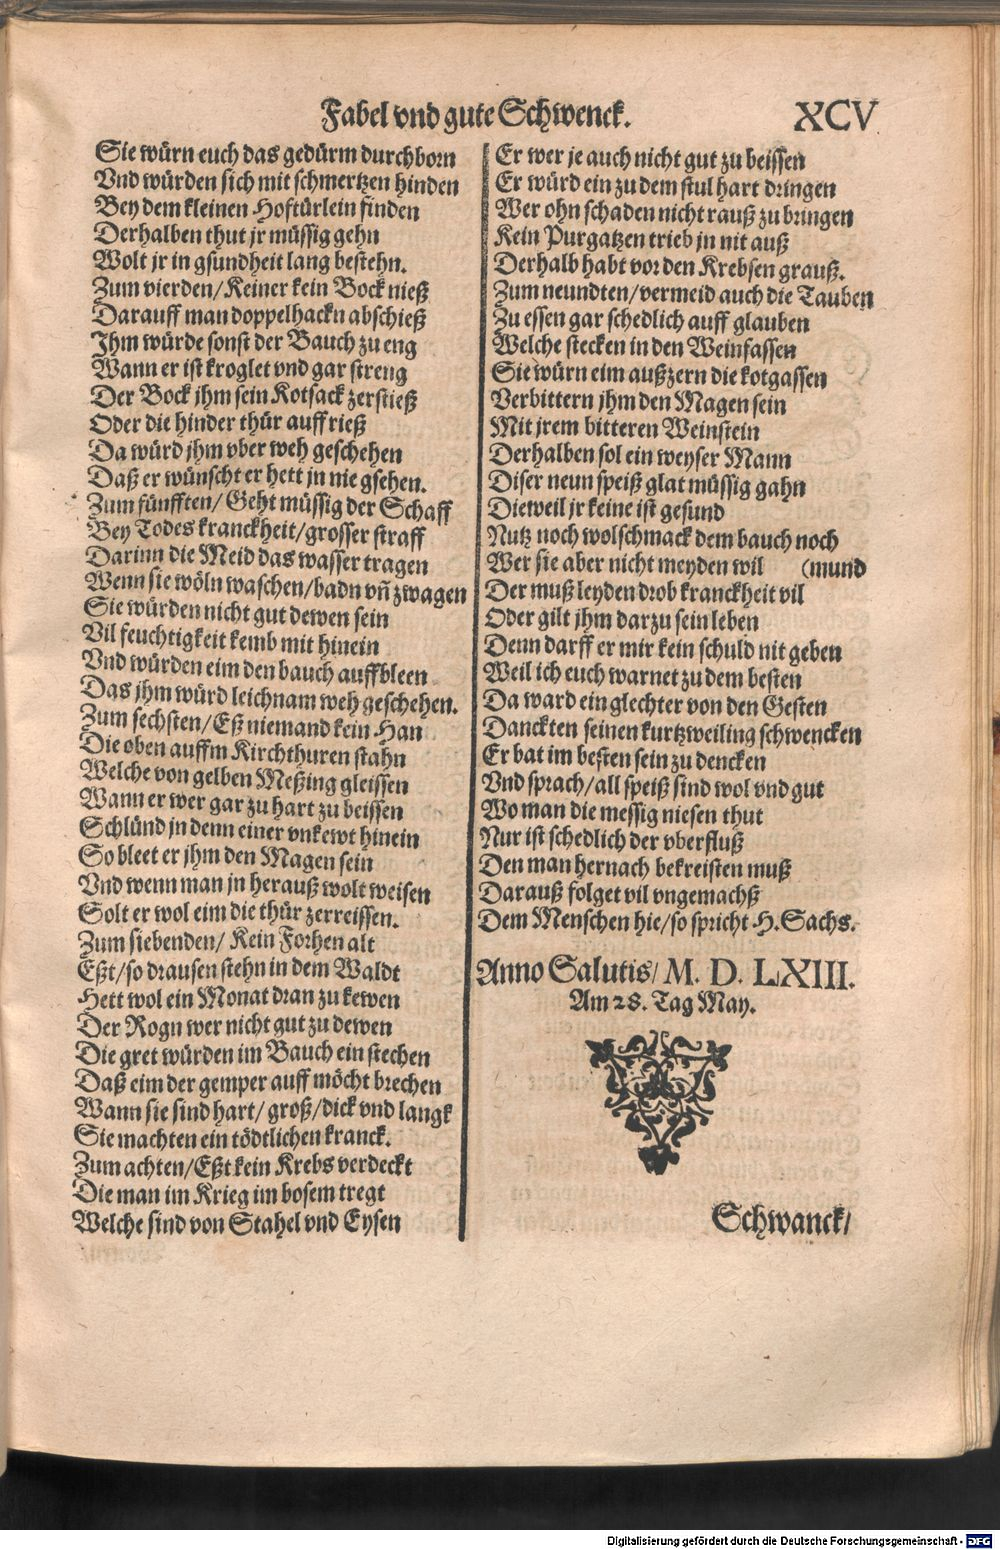 Fabel vnd gute Schwenck. XCV
Sie würn euch das gedürm durchborn
Vnd würden sich mit schmertzen hinden
Bey dem kleinen Hoftürlein finden
Derhalben thut jr müssig gehn
Wolt jr in gsundheit lang bestehn.
Zum vierden/ Keiner kein Bock nieß
Darauff man doppelhackn abschieß
Ihm würde sonst der Bauch zu eng
Wann er ist kroglet vnd gar streng
Der Bock jhm sein Kotsack zerstieß
Oder die hinder thür auff rieß
Da würd jhm vber weh geschehen
Daß er wünscht er hett jn nie gsehen.
Zum fünfften/ Geht müssig der Schaff
Bey Todes kranckheit/ grosser straff
Darinn die Meid das wasser tragen
Wenn sie wöln waschen/ badn vñ zwagen
Sie würden nicht gut dewen sein
Vil feuchtigkeit kemb mit hinein
Vnd würden eim den bauch auffbleen
Das jhm würd leichnam weh geschehen.
Zum sechsten/ Eß niemand kein Han
Die oben auffm Kirchthuren stahn
Welche von gelben Meßing gleissen
Wann er wer gar zu hart zu beissen
Schlünd jn denn einer vnkewt hinein
So bleet er jhm den Magen sein
Vnd wenn man jn herauß wolt weisen
Solt er wol eim die thür zerreissen.
Zum siebenden/ Kein Forhen alt
Eßt/ so drausen stehn in dem Waldt
Hett wol ein Monat dran zu kewen
Der Rogn wer nicht gut zu dewen
Die gret würden im Bauch ein stechen
Daß eim der gemper auff möcht brechen
Wann sie sind hart/ groß/ dick vnd langk
Sie machten ein tödtlichen kranck.
Zum achten/ Eßt kein Krebs verdeckt
Die man im Krieg im bosem tregt
Welche sind von Stahel vnd Eysen
Er wer je auch nicht gut zu beissen
Er würd ein zu dem stul hart dringen
Wer ohn schaden nicht rauß zu bringen
Kein Purgatzen trieb jn nit auß
Derhalb habt vor den Krebsen grauß.
Zum neundten/ vermeid auch die Tauben
Zu essen gar schedlich auff glauben
Welche stecken in den Weinfassen
Sie würn eim außzern die kotgassen
Verbittern jhm den Magen sein
Mit jrem bitteren Weinstein
Derhalben sol ein weyser Mann
Diser neun speiß glat müssig gahn
Dieweil jr keine ist gesund
Nutz noch wolschmack dem bauch noch
Wer sie aber nicht meyden wil (mund
Der muß leyden drob kranckheit vil
Oder gilt jhm darzu sein leben
Denn darff er mir kein schuld nit geben
Weil ich euch warnet zu dem besten
Da ward ein glechter von den Gesten
Danckten seinen kurtzweiling schwencken
Er bat im besten sein zu dencken
Vnd sprach/ all speiß sind wol vnd gut
Wo man die messig niesen thut
Nur ist schedlich der vberfluß
Den man hernach bekreisten muß
Darauß folget vil vngemachß
Dem Menschen hie/ so spricht H. Sachs.
Anno Salutis/ M. D. LXIII.
Am 28. Tag May.
Schwanck/
Digitalisierung gefördert durch die Deutsche Forschungsgemeinschaft - DFG